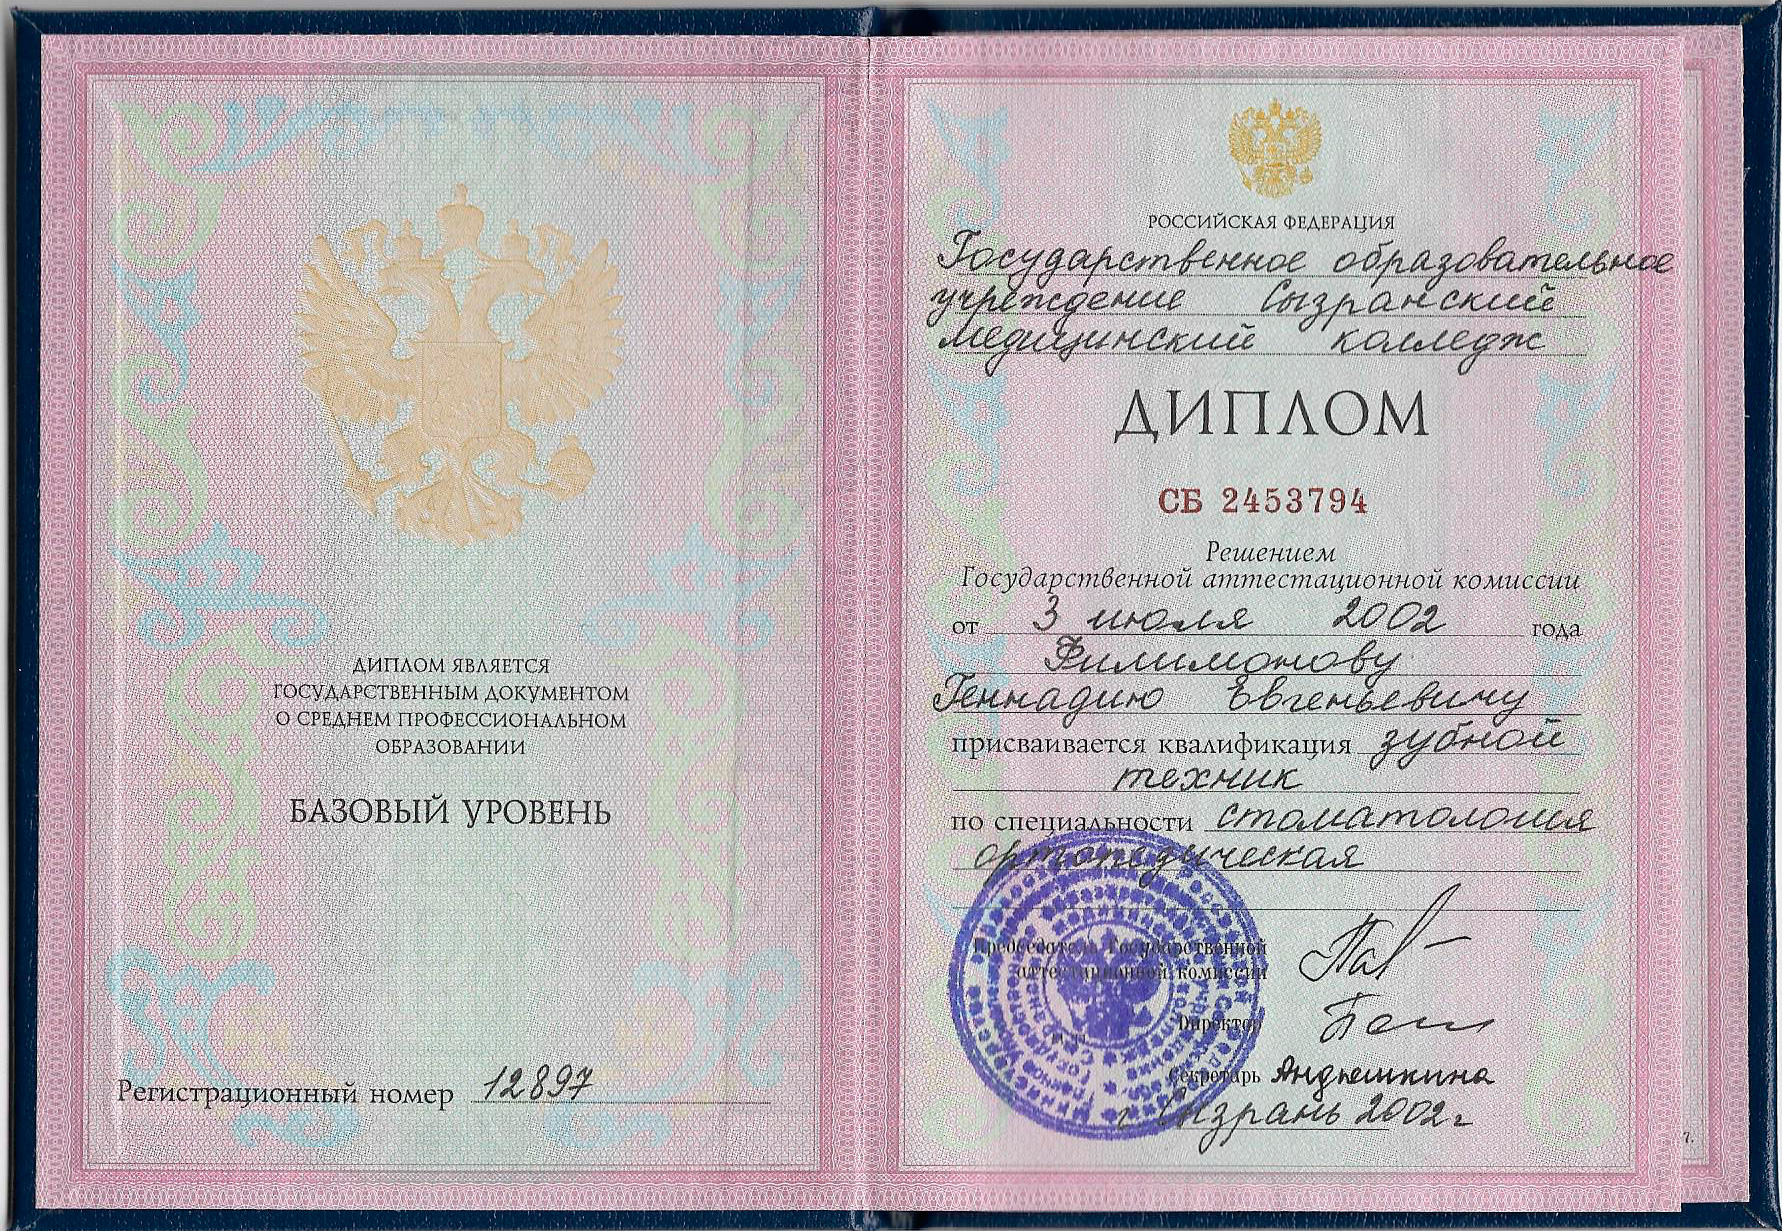 ДИПЛОМ ЯВЛЯЕТСЯ
ГОСУДАРСТВЕННЫМ ДОКУМЕНТОМ
О СРЕДНЕМ ПРОФЕССИОНАЛЬНОМ
ОБРАЗОВАНИИ
БАЗОВЫЙ УРОВЕНЬ
Регистрационный номер 12897
РОССИЙСКАЯ ФЕДЕРАЦИЯ
Государственное образовательное
учреждение Сызранский
медицинский колледж
ДИПЛОМ
СБ 2453794
Решением
Государственной аттестационной комиссии
от 3 июля 2002 года
Филимонову
Геннадию Евгеньевичу
присваивается квалификация зубной
техник
по специальности стоматология
ортопедическая
Председатель Государственной
аттестационной комиссии
Директор
Секретарь Андрюшкина
г. Сызрань 2002г
7.